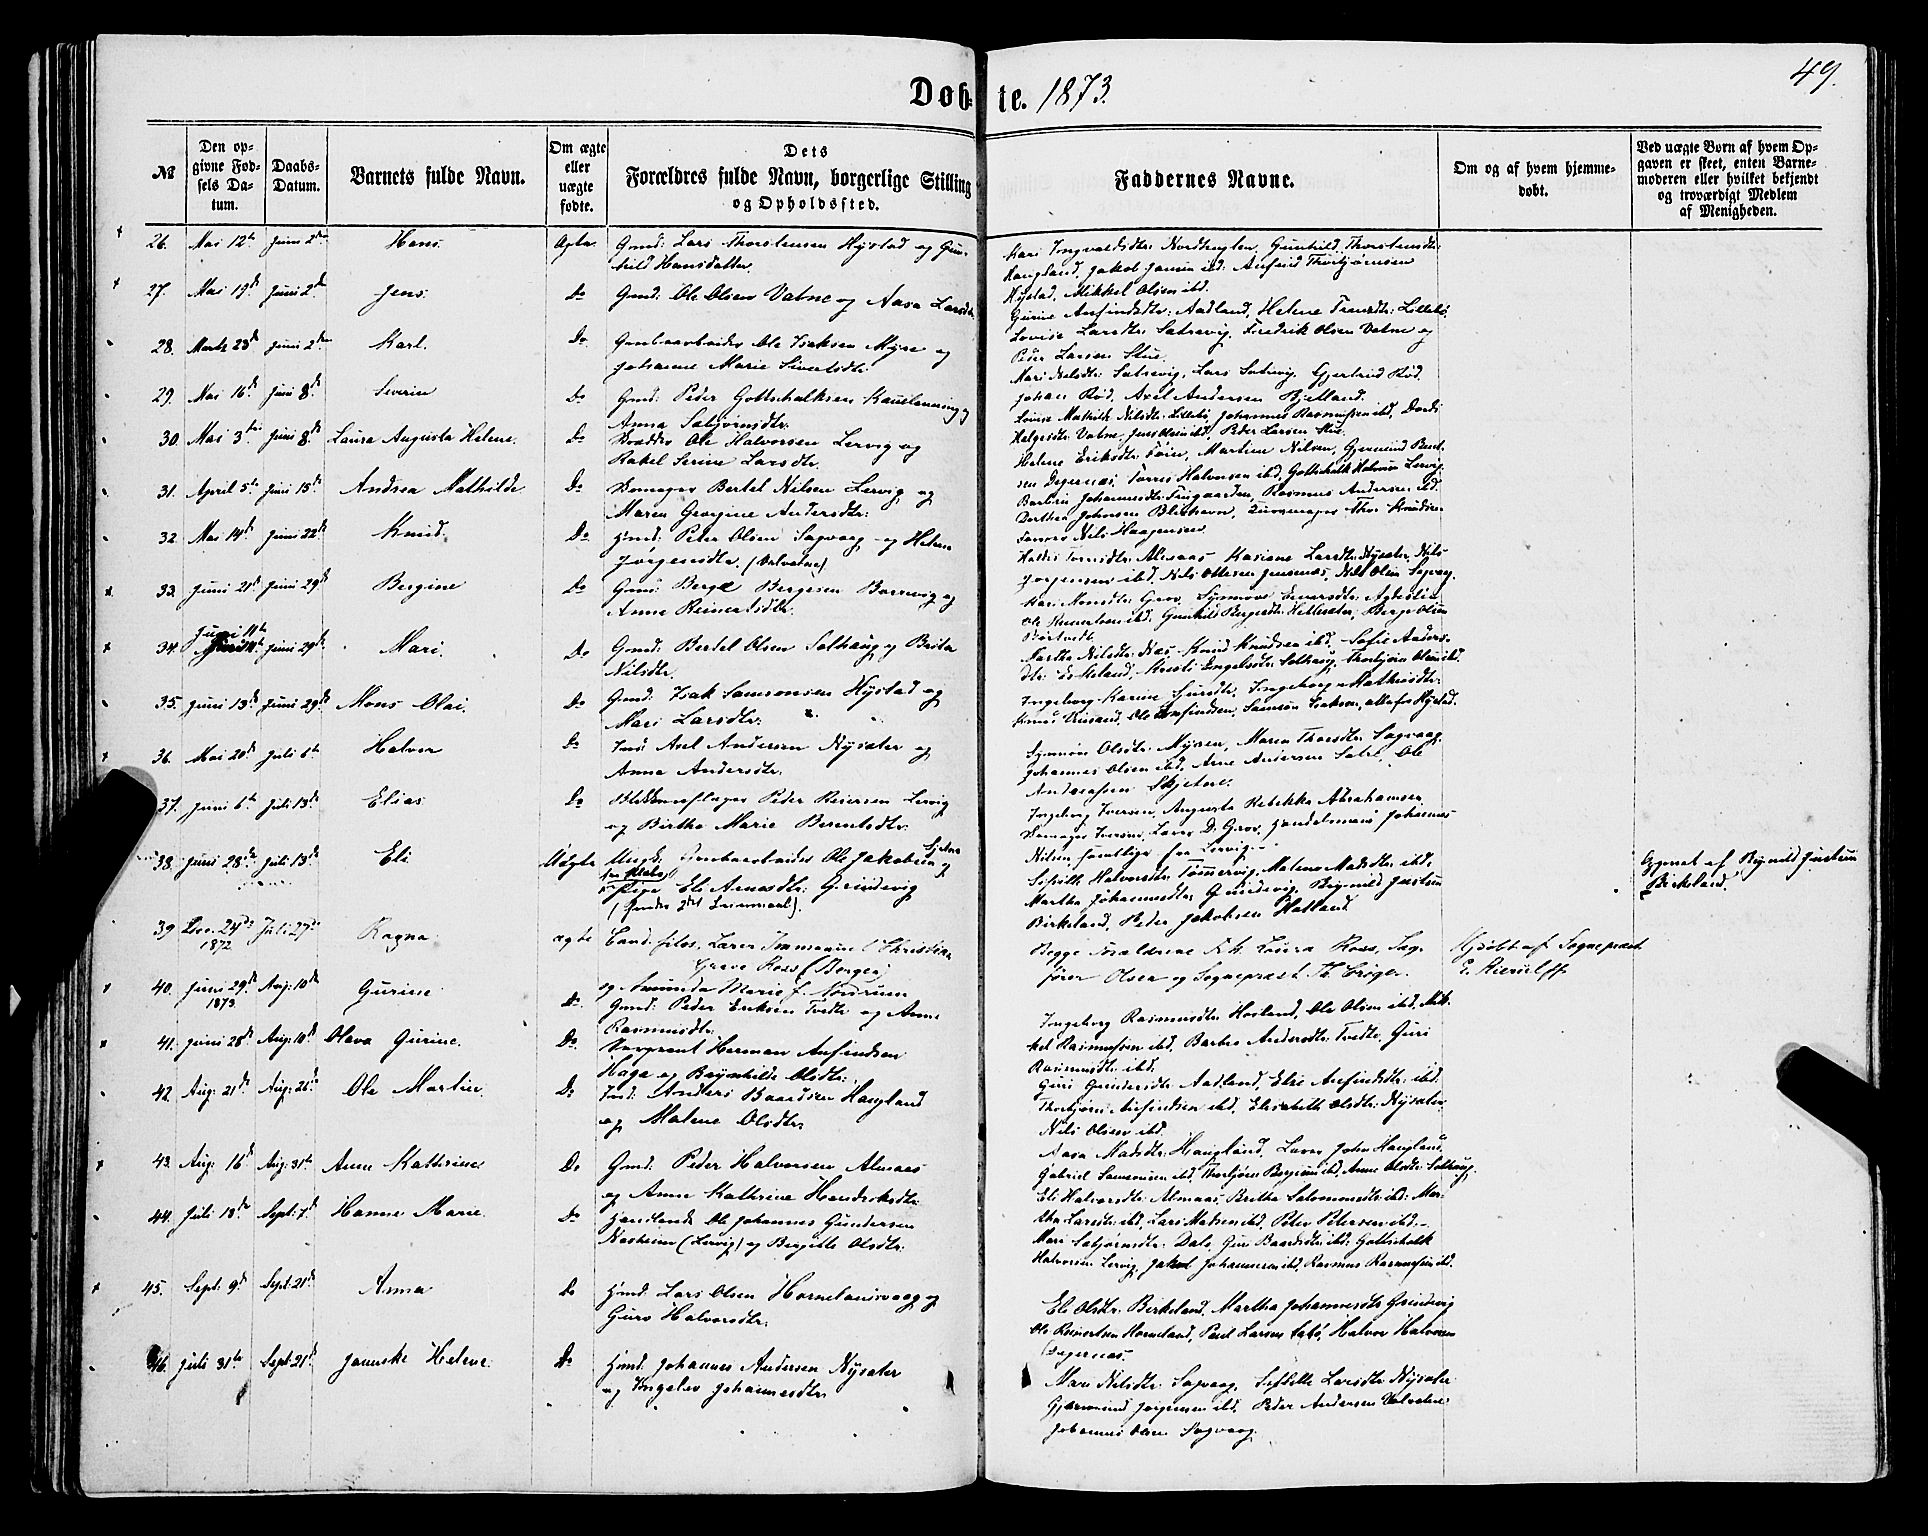 49.
Døbte. 1873.
№
Den opgivne Fødsels Datum.
Daabs-Datum.
Barnets fulde Navn.
Om ægte eller uægte fødte.
Dets Forældres fulde Navn, borgerlige Stilling og Opholdssted.
Faddernes Navne.
Om og af hvem hjemmedøbt.
Ved uægte Børn af hvem Opgaven er skeet, enten Barnemoderen eller hvilket bekjendt og troværdigt Medlem af Menigheden.
26. Mai 12te Juni 2den Hans Ægte. Gmd: Lars Thorstensen Hystad og Gunhild Hansdatter
Kari Ingvaldsdtr: Nordhuglen, Gunhild Thorstensdtr:
Haugland, Jakob Jansen ibd: Anfind Thorbjørnsen
Hystad, Mikkel Olsen ibd.
27. Mai 19de Juni 2de Jens. Do Gmd: Ole Olsen Vatne og Aasa Larsdtr
Gurine Anfindsdtr: Aadland, Helene Lillebø,
Lovise Larsdtr: Sætrevig, Fredrik Olsen Vatne og
Peder Larsen Stue.
28. Marts 23de Juni 2den Karl. Do Grubearbeider Ole Isaksen Myre og
Johanne Marie Sivertsdtr:
Mari Nilsdtr: Sætrevig, Lars Sætrevig, Gjertrud Rød,
Johan Rød, Axel Andersen Bjelland.
29. Mai 16de Juni 8de Severin Do Gmd: Peder Gottschalksen og
Anna Sæbjørnsdtr:
Louise Mathilde Nilsdtr: Lillebø, Johannes Rasmussen ibd, Dordi
Helgesdtr: Vatne, Jens Olsen ibd, Peder Larsen Stue.
30. Mai 3die Juni 8de Laura Augusta Helene. Do Ole Halvorsen Lervig og
Rakel Serine Larsdtr.
Helene Eriksdtr: Føien, Martine Nilsen, Gjermund
Degernæs, Torres Halvorsen ibd, Gottschalk Halvorsen Lervig.
31. April 5te Juni 15de Andrea Mathilde Do Skomager Bertel Nilsen Lervig og
Maren Georgine Andersdtr:
Johannesdtr: Rasmus Andersen ibd.
Dorthea Johnsen
Nils Haagensen
32. Mai 14de Juni 22de Knud. Do Hmd: Peder Olsen Sagvaag og Helene
Jørgensdtr. (Valvatne)
Almaas Larsdtr: Nysæter, Nils
Jørgensen ibd, Nils Ottesen Jensenæs, Nils Olsen Sagvaag.
33. Juni 21de Juni 29de Bergine Do Gmd: Berge Bergesen og
Anna Reinertsdtr:
Kari Monsdtr: Grov, Synnøve
Ole ibd, Gunhild Bergesdtr: Hellesæter, Berge Olsen
34. Juni 11te Juni 29de Mari. Do Gmd: Bertel Olsen Solhaug og Brita
Nilsdtr.
Martha Nilsdtr: Næs, Knud Knudsen ibd, Sofie Anders-
dtr: Eskeland, Kristi Engelsdtr: Solhaug, Thorbjørn Olsen ibd.
35. Juni 13de Juni 29de Mons Olai. Do Gmd: Isak Samsonsen Hystad og
Mari Larsdtr:
Ingeborg Karine Sjursdtr: Ingeborg Mathiasdtr:
Ole Anfindsen, Samson Isaksen, alle fra Hystad.
36. Mai 20de Juli 6te Halvor Do Axel Andersen Nysæter og
Anna Andersdtr:
Synnøve Olsdtr: Myren, Maren Thoresdtr: Sagvaag,
Johannes Olsen ibd, Arne Andersen Ole
Andreassen Skjetne.
37. Juni 6te Juli 13de Elias Do Peder Reiersen Lervig
og Birthe Marie Berentsdtr:
Ingeborg Iversen, Augusta Rebekka Abrahamsen,
Iversen, Lærer D. Grov, Handelsmand Johannes
Nilsen samtlige fra Lervig.
38. Juni 28de Juli 13de Eli Uægte Ungk. Grubearbeider Ole Jakobsen og
Pige Eli Arnesdtr: Grindevig
(Hendes 2det Leiermaal).
Halvorsdtr: Tømmervig, Malene Madsdtr: ibd,
Martha Johannesdtr: Grindevig, Brynild Justsen
Birkeland, Peder Jakobsen Hatland.
Opgivet af Brynild Justsen
Birkeland.
39 Dec. 24de 1872 Juli 27de Ragna. ægte Cand. filos., Lærer Immanuel Christian
Grave Ross (Bergen)
og Amunda Marie f. Nordrum
Begge Forældrene Frk. Laura Ross, Sag-
fører Olsen og Sogneprest Th. Crøger.
Hjdøbt af Sogneprest
40. Juni 29de 1873. Aug: 10de Gurine Do Gmd: Peder Eriksen Tvedte og Anne
Rasmusdtr:
Ingeborg Rasmusdtr: Hovland, Ole Olsen ibd, Mik-
kel Rasmussen ibd, Barbro Andersdtr: Tvedte, Guri
Rasmusdtr: ibd.
41. Juni 28de Aug: 10de Olava Gurine. Do Sergeant Herman Anfindsen
Haga og Brynhilde Olsdtr:
Guri Gundersdtr: Aadland, Elsi Anfindsdtr: ibd.
Thorbjørn Anfindsen ibd, Elisabeth Olsdtr: Nysæter,
Nils Olsen ibd.
42 Aug: 21de Aug: 26de Ole Martin. Do Anders Baardsen Haugland
og Malene Olsdtr.
Aasa Madsdtr: Haugland, Lærer John Haugland,
Gabriel Samsonsen ibd, Thorbjørn Bergesen ibd, Anne Olsdtr: Solhaug.
43. Aug: 16de Aug: 31te Anne Kathrine Do Gmd: Peder Halvorsen Almaas
og Anne Kathrine Hendriksdtr:
Eli Halvorsdtr: Almaas, Brithe Salomonsdtr: ibd: Mar-
tha Larsdtr: ibd, Lars Madsen ibd, Peter Petersen ibd.
44. Juli 18de Sept: 7de Hanne Marie. Do Handlende Ole Johannes Gundersen
Næsheim (Lervig) og Bergitte Olsdtr:
Mari Sæbjørnsdtr: Dale, Guri Baardsdtr: ibd: Gottschalk
Halvorsen Lervig, Jakob Johannesen ibd, Rasmus Rasmussen ibd.
45. Sept: 9de Sept: 21de Anna Do Hmd: Lars Olsen Hornelandsvaag og
Guro Halvorsdtr:
Eli Olsdtr: Birkeland, Martha Johannesdtr: Grindevig
Ole Reinertsen Horneland, Paul Larsen Halvor Halvorsen
Degernæs.
46. Juli 31te Sept: 21de Janneke Helene Do Hmd: Johannes Andersen Nysæter
og Ingelev Johannesdtr.
Mari Nilsdtr: Sagvaag, Larsdtr: Nysæter
Gjermund Jørgensen ibd, Peder Andersen Valvatne
Johannes Olsen Sagvaag.